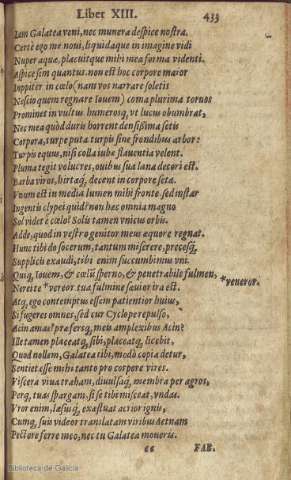 Liber XIII. 433
Iam Galatea veni, nec munera despice nostra.
Certè ego me noui, liquidaque in imagine vidi
Nuper aquæ, placuitque mihi mea forma videnti.
Aspice sim quantus. non est hoc corpore maior
Iuppiter in cœlo (nam vos narrare soletis
Nescio quem regnare Iouem) coma plurima toruos
Prominet in vultus. humerosq, vt lucus obumbrat,
Nec mea quòd duris horrent densissima setis
Corpora, turpe puta. turpis sine frondibus arbor:
Turpis equus, nisi colla iubæ flauentia velent.
Pluma tegit volucres, ouibus sua lana decori est.
Barba viros, hirtæq, decent in corpore setæ.
Vnum est in media lumen mihi fronte, sed instar
Ingentis clypei. quid? non hæc omnia magno
Sol videt è cœlo? Soli tamen vnicus orbis.
Adde, quod in vestro genitor meus æquore regnat.
Hunc tibi do socerum, tantum miserere, precesq,
Supplicis exaudi, tibi enim succumbimus vni.
Quiq, Iouem, & cœlū sperno, & penetrabile fulmen,
Nereite * vereor tua fulmine sæuior ira est. *veneror.
Atq, ego contemptus essem patientior huius,
Si fugeres omnes, sed cur Cyclope repulso,
Acin amas? præfersq, meis amplexibus Acin?
Ille tamen placeatq, sibi, placeatq, licebit,
Quod nollem, Galatea tibi, modò copia detur,
Sentiet esse mihi tanto pro corpore vires.
Viscera viua traham, diuulsaq, membra per agros,
Perq, tuas spargam, si se tibi misceat, vndas.
Vror enim, læsusq, exæstuat acrior ignis,
Cumq, suis videor translatam viribus Aetnam
Pectore ferre meo, nec tu Galatea moueris.
ee FAB.
Biblioteca de Galicia